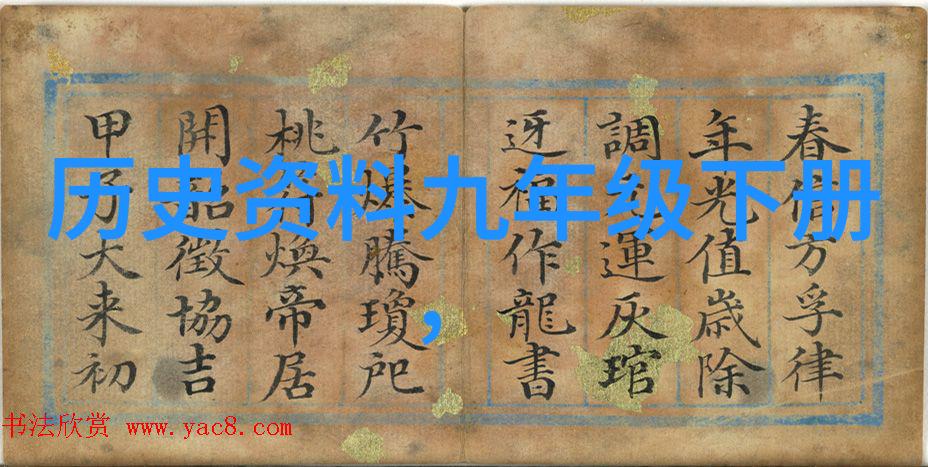 春信方孚律
年光值歲除
調運灰琯
迓福作龍書
竹爆騰瓊
桃符煥帝居
開韶徵協吉
甲子大来初
历史资料九年级下册
，
书法欣赏 www.yac8.com